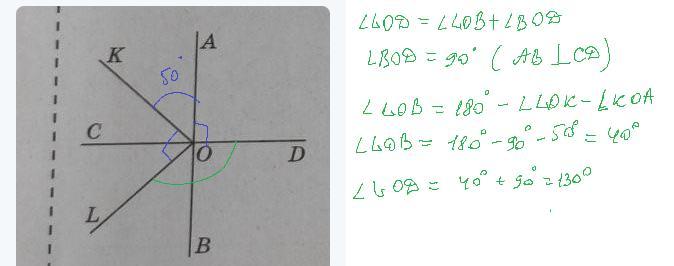 A
K
50°
C
O
D
L
B
∠LOD = ∠LOB + ∠BOD
∠BOD = 90° ( AB ⊥ CD )
∠LOB = 180° - ∠LOK - ∠KOA
∠LOB = 180° - 90° - 50° = 40°
∠LOD = 40° + 90° = 130°